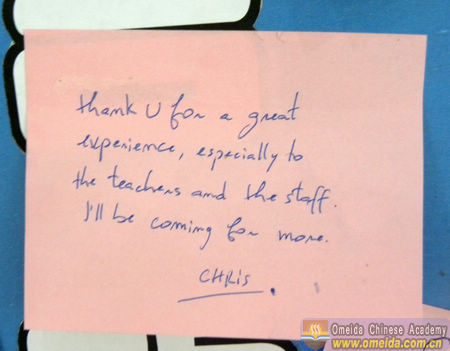 thank U for a great
experience, especially to
the teachers and the staff.
I'll be coming for more.
CHRis.
Omeida Chinese Academy
www.omeida.com.cn